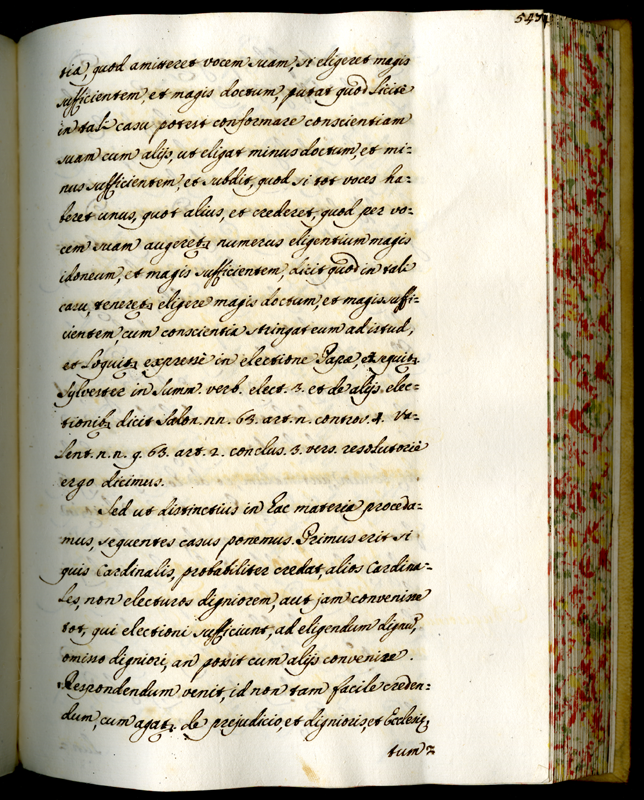 543
tia, quod amitteret vocem suam, si eligeret magis
sufficientem, et magis doctum, putat quod licitè
in tali casu potest conformare conscientiam
suam cum alijs, ut eligat minus doctum, et mi=
nus sufficientem, et subdit, quod si tot voces ha=
beret unus, quot alius, et crederet, quod per vo=
cem suam augeretꝫ numerus eligentium magis
idoneum, et magis sufficientem, dicit quod in tali
casu, teneretꝫ eligere magis doctum, et magis suffi=
cientem cum conscientia stringat eum ad istud,
et loquitꝫ expressè in electione Papæ,
Sylvester in Summ. verb. elect. 3. et de alijs elec=
tionibꝫ dicit Salon. nn. 63. art. n. controv. 4. Va=
lent. n. n. q. 63. art. 2. conclus. 3. vers. resolutoriè
ergo dicimus.
Sed ut distinctius in hac materia proceda=
mus, sequentes casus ponemus. Primus erit si
quis Cardinalis, probabiliter credat, alios Cardina=
les, non electuros digniorem, aut jam convenisse
tot, qui electioni sufficiunt, ad eligendum dignũ,
omisso digniori, an possit cum alijs convenire.
Respondendum venit, id non tam facile creden=
dum, cum agatꝫ de prejudicio, et dignioris, et Eccles
tum